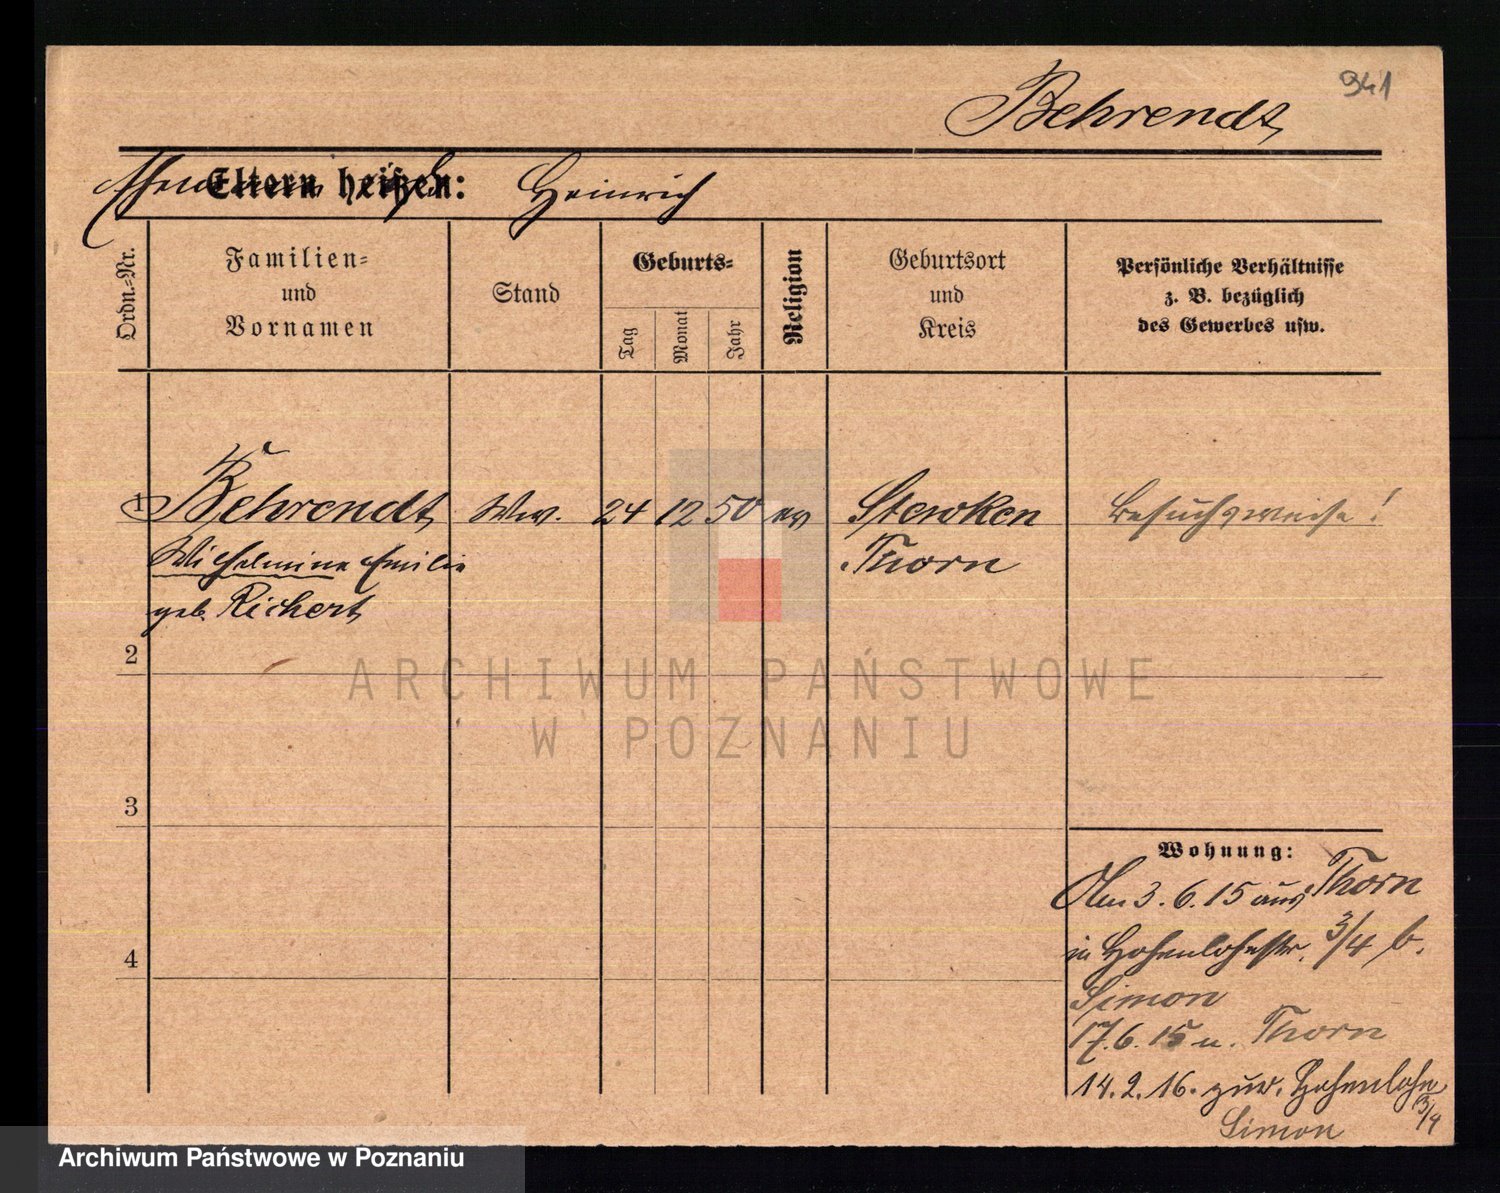 941
Behrendt
Eltern heißen: Heinrich
Ordn.-Nr.
Familien-
und
Vornamen
Stand
Geburts-
Tag
Monat
Jahr
Religion
Geburtsort
und
Kreis
Persönliche Verhältnisse
z. B. bezüglich
des Gewerbes usw.
1 Behrendt Ww. 24 12 50 ev Stewken besuchsweise!
Wilhelmine Emilie Thorn
geb. Richert
2
3
4
ARCHIWUM PAŃSTWOWE
W POZNANIU
Wohnung:
Am 3.6.15 aus Thorn
in Hohenlohestr. 3/4 b.
Simon
17.6.15 n. Thorn
14.2.16. zur. Hohenlohe
3/4
Simon
Archiwum Państwowe w Poznaniu